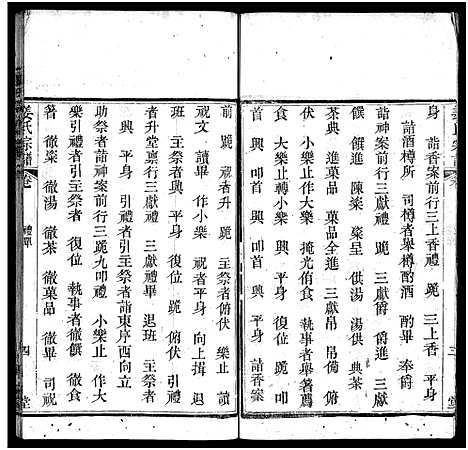 身 詣香案前行三上香禮 跪 三上香 平身
詣酒樽所 司樽者舉樽酌酒 酌畢 奉爵
詣神案前行三獻禮 跪 三獻爵 爵進 三獻
饌 饌進 陳粢 粢呈 供湯 湯供 典茶
茶典 進菓品 菓品全進 三獻帛 帛獻 俯
伏 小樂止作大樂 掩光侑食 執事者舉箸薦
食 大樂止轉小樂 興 平身 復位 跪 叩
首 興 叩首 興 叩首 興 平身 詣香案
姜氏宗譜 卷 禮單 四 堂
前 跪 禮者升 跪 主祭者俯伏 樂止 讀
祝文 讀畢 作小樂 祝者平身 向上揖 退
班 主祭者 興 平身 復位 跪 俯伏 禮
者升堂應行三獻禮畢 退班 主祭者
興 平身 引禮者引主祭者詣東序西向立
助祭者詣神案前行三跪九叩禮 小樂止 作大
樂引禮者引主祭者 復位 執事者徹饌 徹食
箸 徹粢 徹湯 徹茶 徹菓品 徹畢 司祝